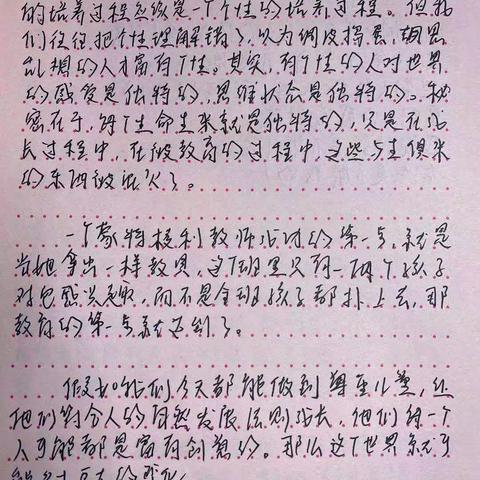 的培养过程必须是一个个性的培养过程。但我
们往往把个性理解错了，以为调皮捣蛋、胡思
乱想的人才富有个性。其实，有个性的人对世界
的感受是独特的，思维状态是独特的。秘
密在于，每个生命生来就是独特的，只是在成
长过程中，在被教育的过程中，这些与生俱来
的东西被泯灭了。
一个蒙特梭利教师成功的第一步，就是
当她拿出一样教具，这个班里只有一两个孩子
对它感兴趣，而不是全班孩子都扑上去，那
教育的第一步就达到了。
假如咱们今天都能做到尊重儿童，让
他们符合人的自然发展法则成长，他们每一个
人可能都是富有创意的。那么这个世界就可
能